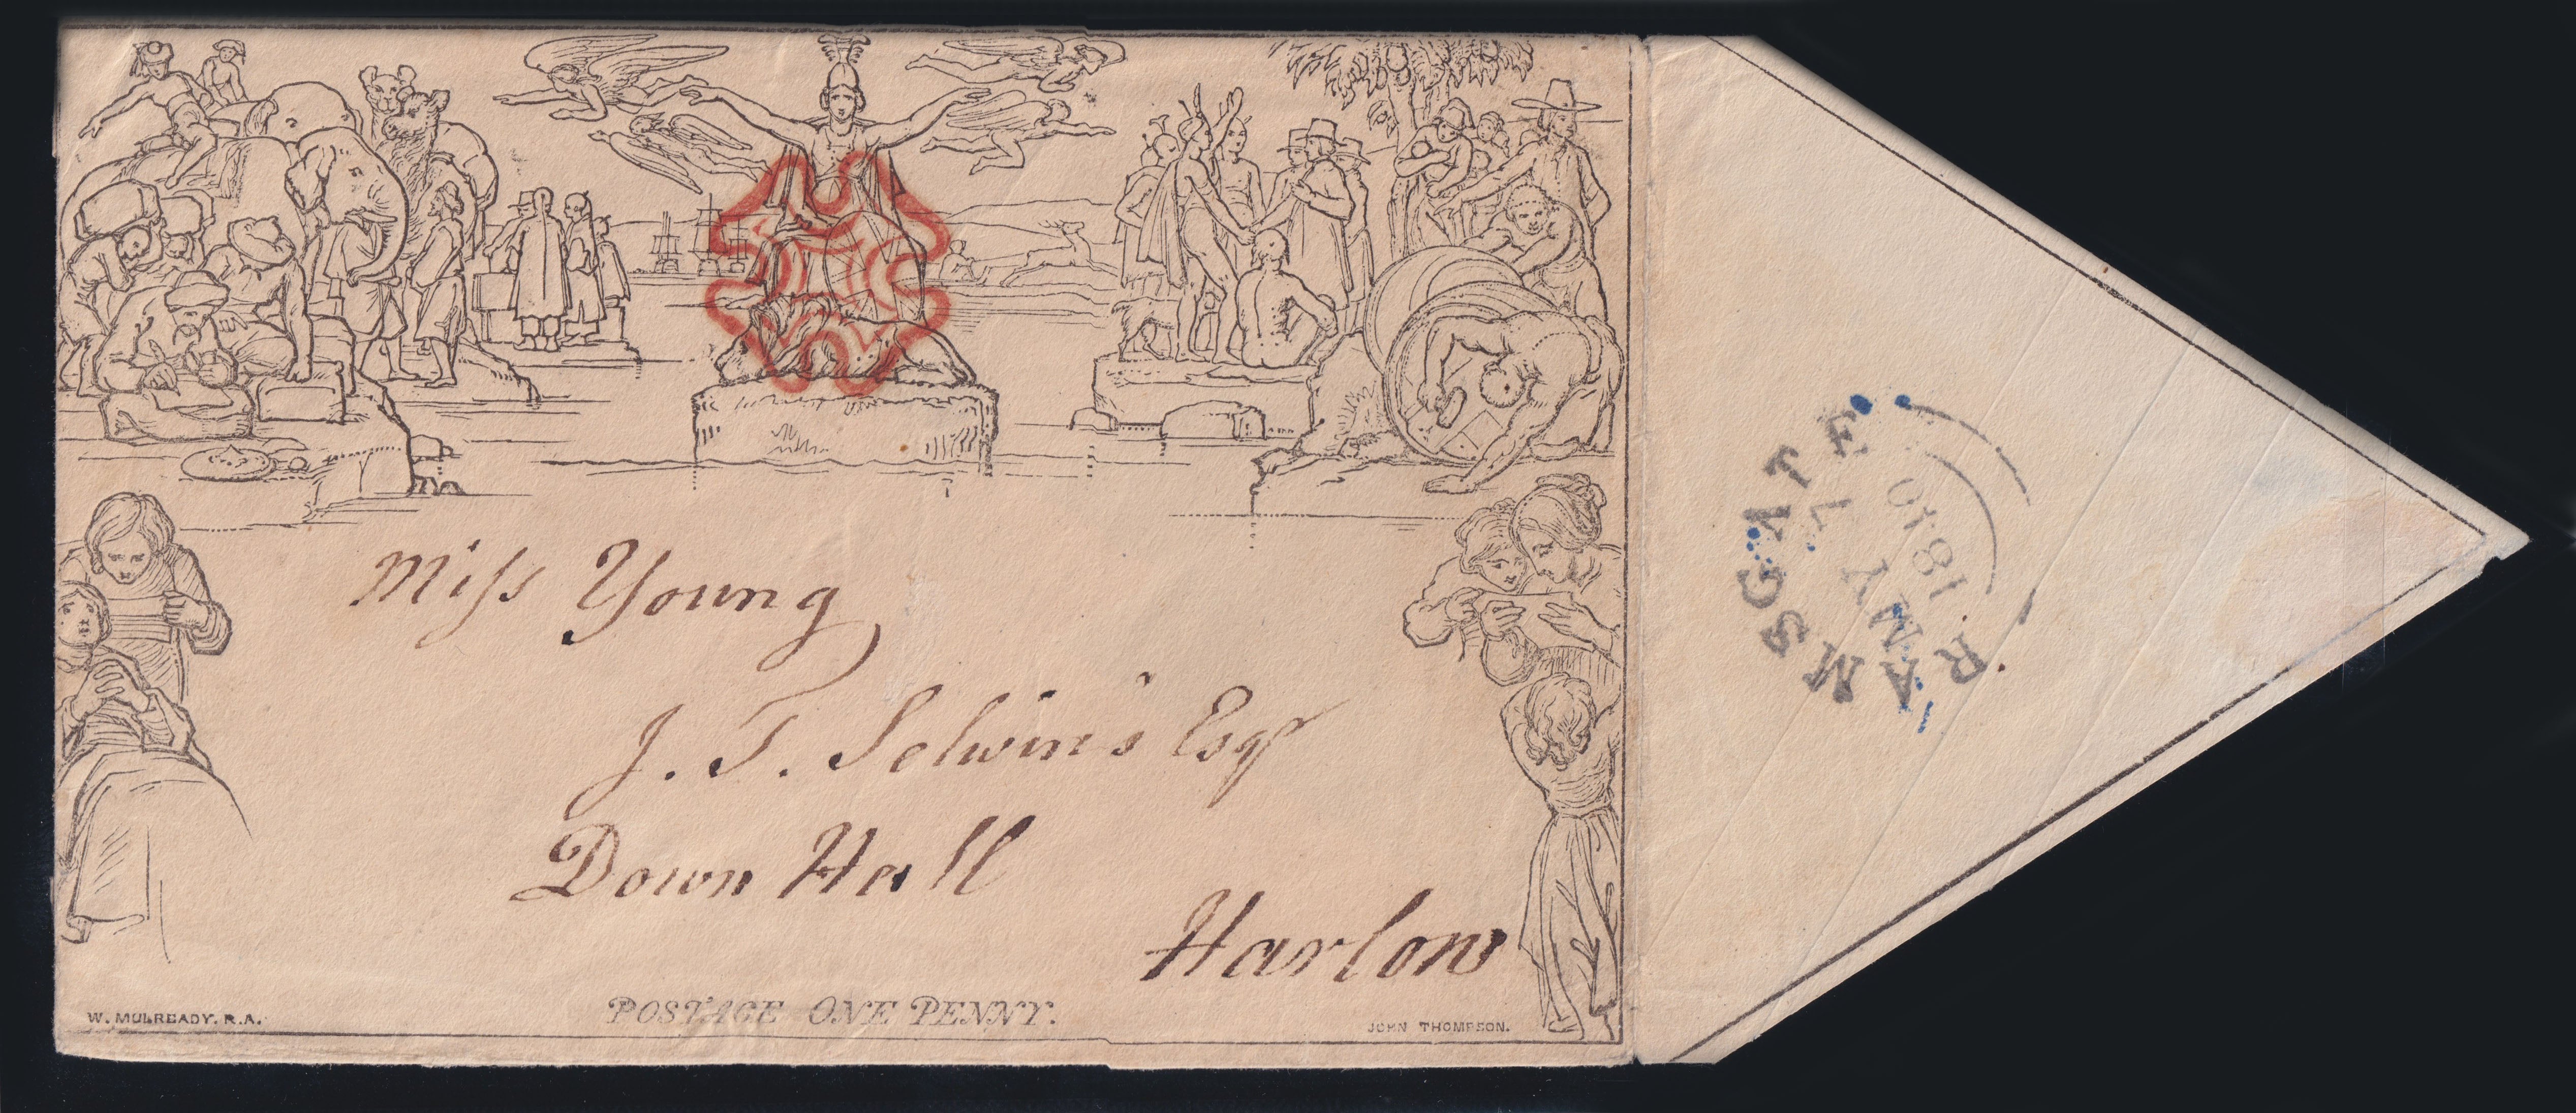 Miss Young
J. T. Selwin's Esqr
Down Hall
Harlow
POSTAGE ONE PENNY.
W. MULREADY. R.A.
JOHN THOMPSON.
RAMSGATE
MY 7
1840